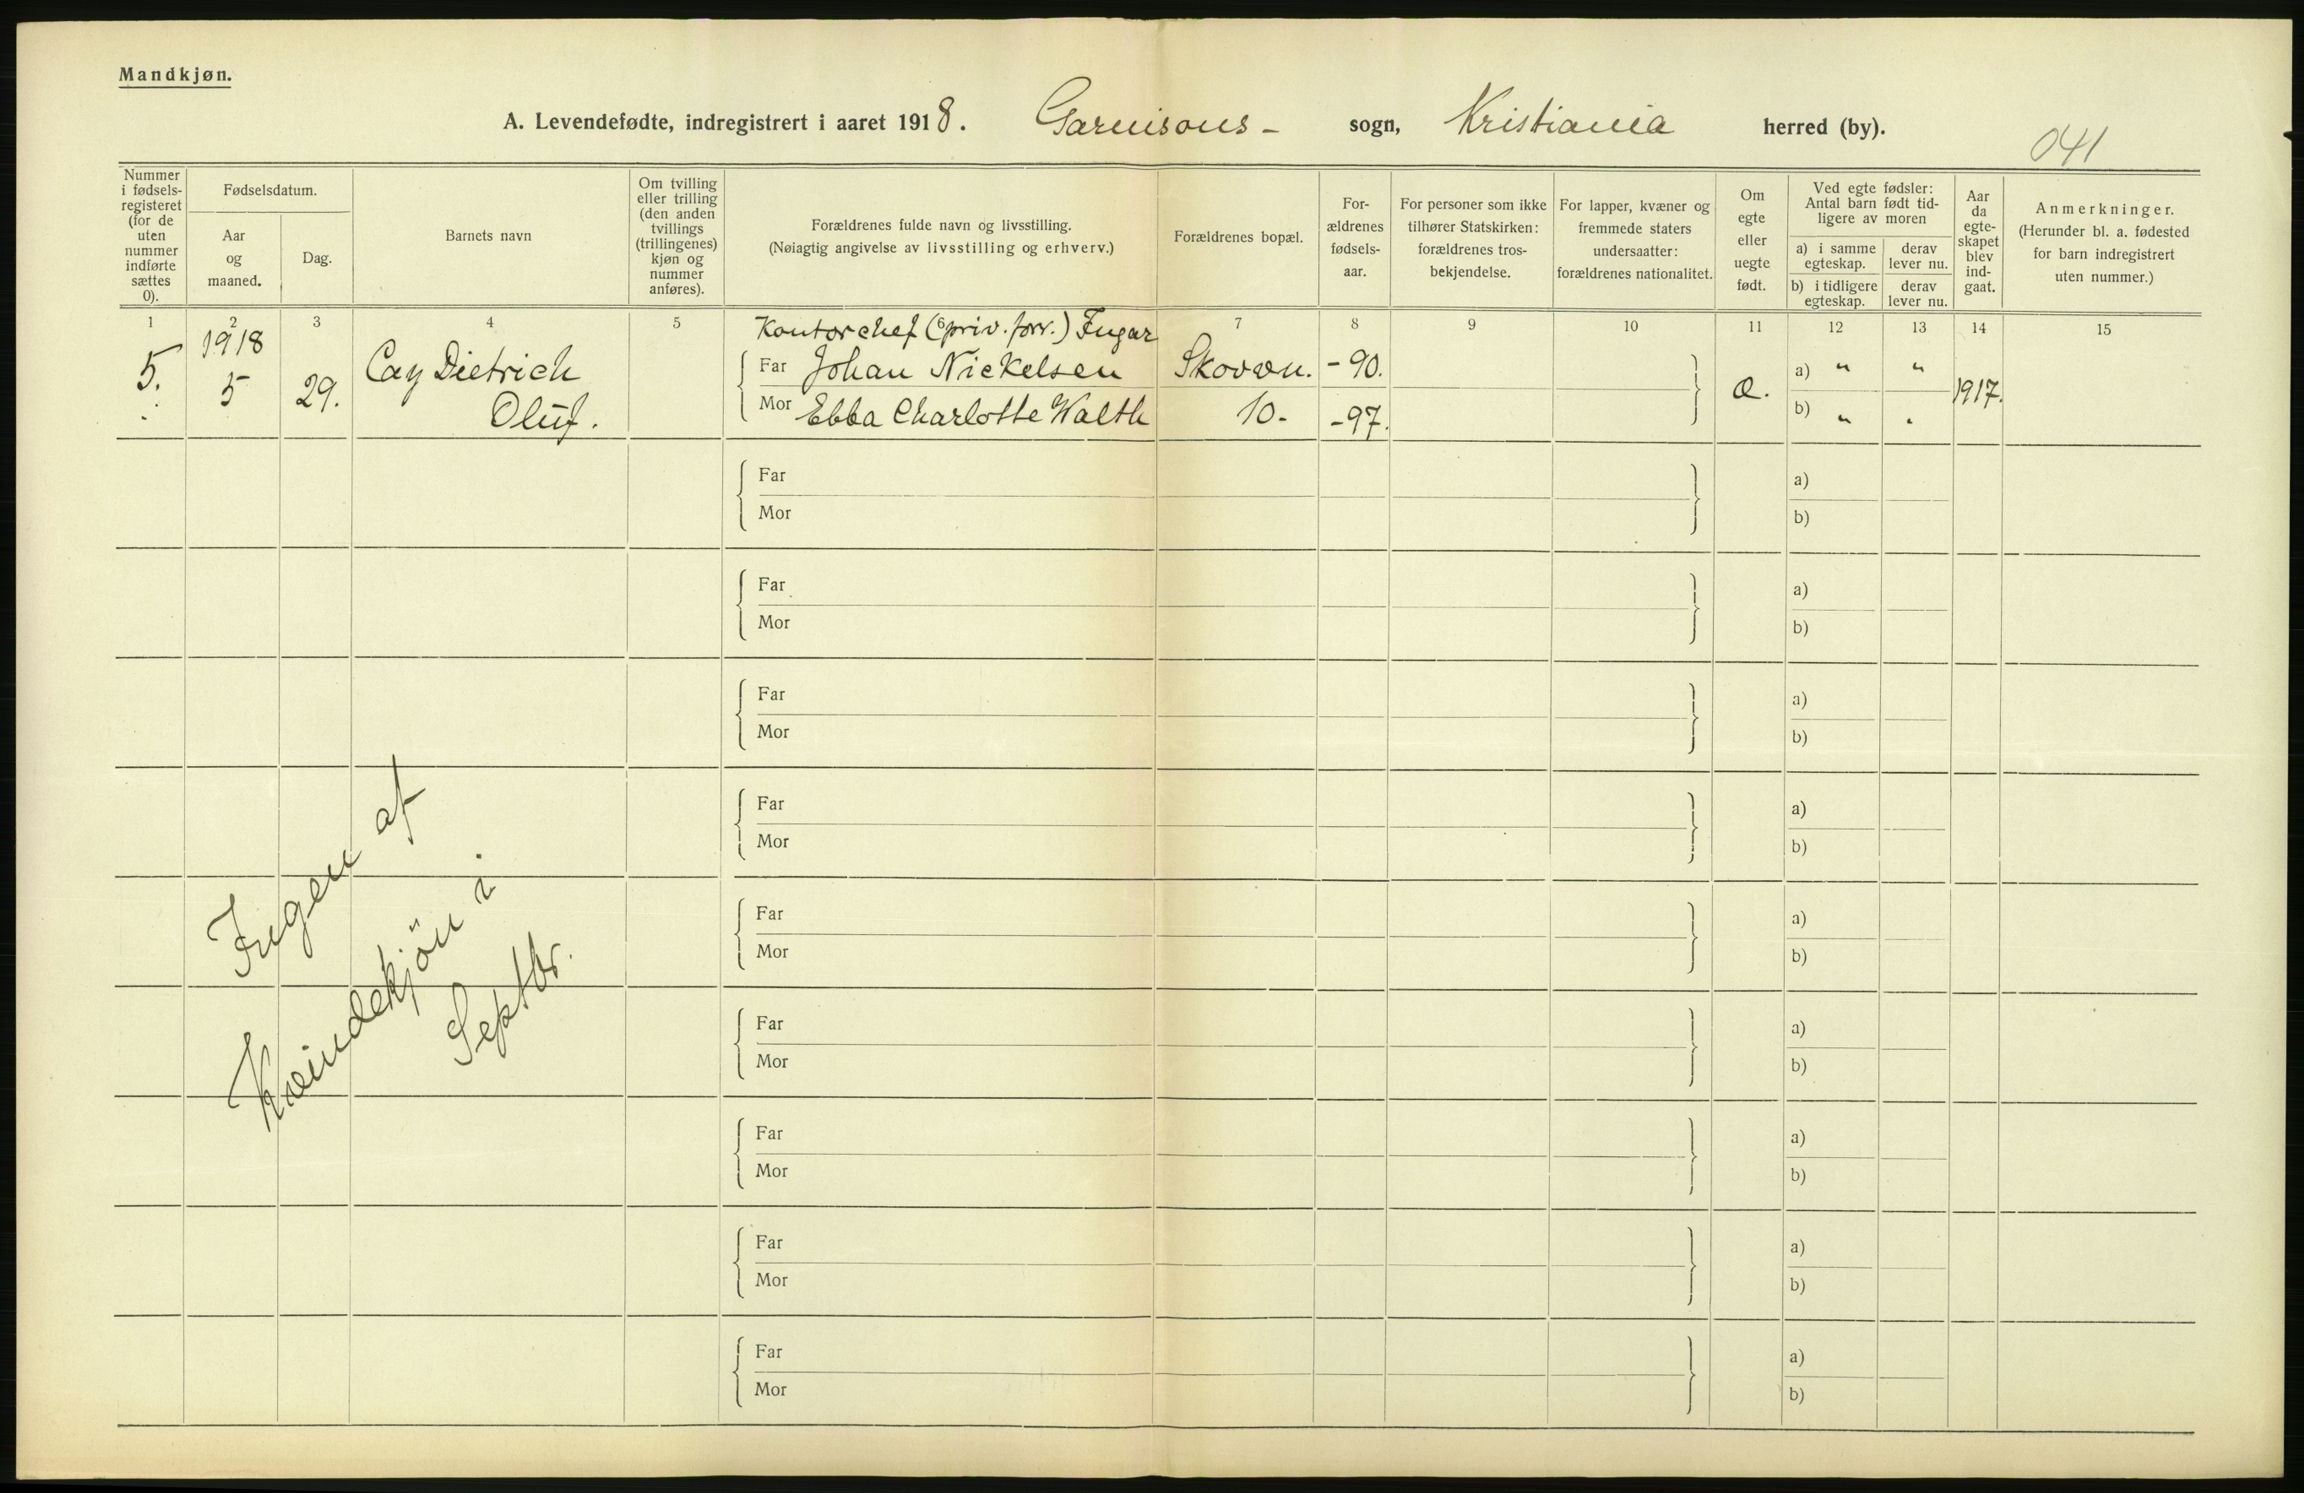 Mandkjøn.
A. Levendefødte, indregistrert i aaret 1918. Garnisons- sogn, Kristiania herred (by).
041
Nummer i fødsels-registeret (for de uten nummer indførte sættes 0).
Fødselsdatum.
Aar og maaned.
Dag.
Barnets navn
Om tvilling eller trilling (den anden tvillings (trillingenes) kjøn og nummer anføres).
Forældrenes fulde navn og livsstilling.
(Nøiagtig angivelse av livsstilling og erhverv.)
Forældrenes bopæl.
For-ældrenes fødsels-aar.
For personer som ikke tilhører Statskirken: forældrenes tros-bekjendelse.
For lapper, kvæner og fremmede staters undersaatter: forældrenes nationalitet.
Om egte eller uegte født.
Ved egte fødsler: Antal barn født tid-ligere av moren
a) i samme egteskap.
derav lever nu.
b) i tidligere egteskap.
derav lever nu.
Aar da egte-skapet blev ind-gaat.
Anmerkninger.
(Herunder bl. a. fødested for barn indregistrert uten nummer.)
1 2 3 4 5 6 7 8 9 10 11 12 13 14 15
Kontorchef (priv. forr.)
5. 1918 5 29. Cay Dietrich Far Johan Nickelsen Skovvn. -90. a) " "
Oluf. Mor Ebba Charlotte Walth 10- -97. b) " " 1917.
Far a)
Mor b)
Far a)
Mor b)
Far a)
Mor b)
Far a)
Mor b)
Far a)
Mor b)
Far a)
Mor b)
Far a)
Mor b)
Far a)
Mor b)
Far a)
Mor b)
Ingen af
Kveindekjön i
Septbr.